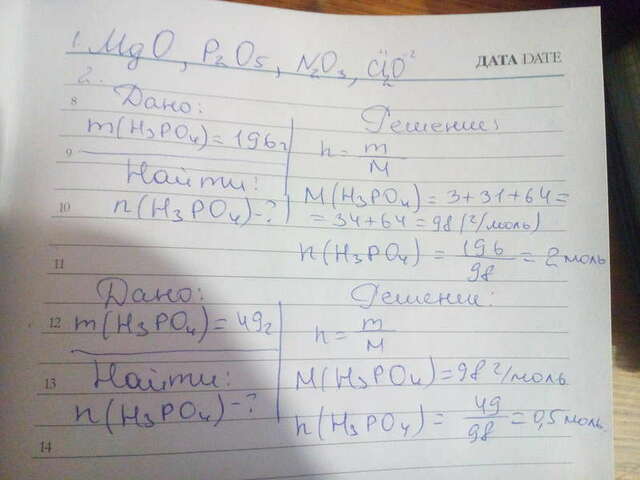 1. MgO, P₂O₅, N₂O₃, Cl₂O⁻²
ДАТА DATE
2.
8 Дано:
m(H₃PO₄) = 196г
9
Найти:
10 n(H₃PO₄)-?
Решение:
n = m/M
M(H₃PO₄) = 3+31+64=
= 34+64 = 98 (г/моль)
n(H₃PO₄) = 196/98 = 2 моль
11
Дано:
12 m(H₃PO₄) = 49г
13 Найти:
n(H₃PO₄)-?
14
Решение:
n = m/M
M(H₃PO₄) = 98 г/моль
n(H₃PO₄) = 49/98 = 0,5 моль